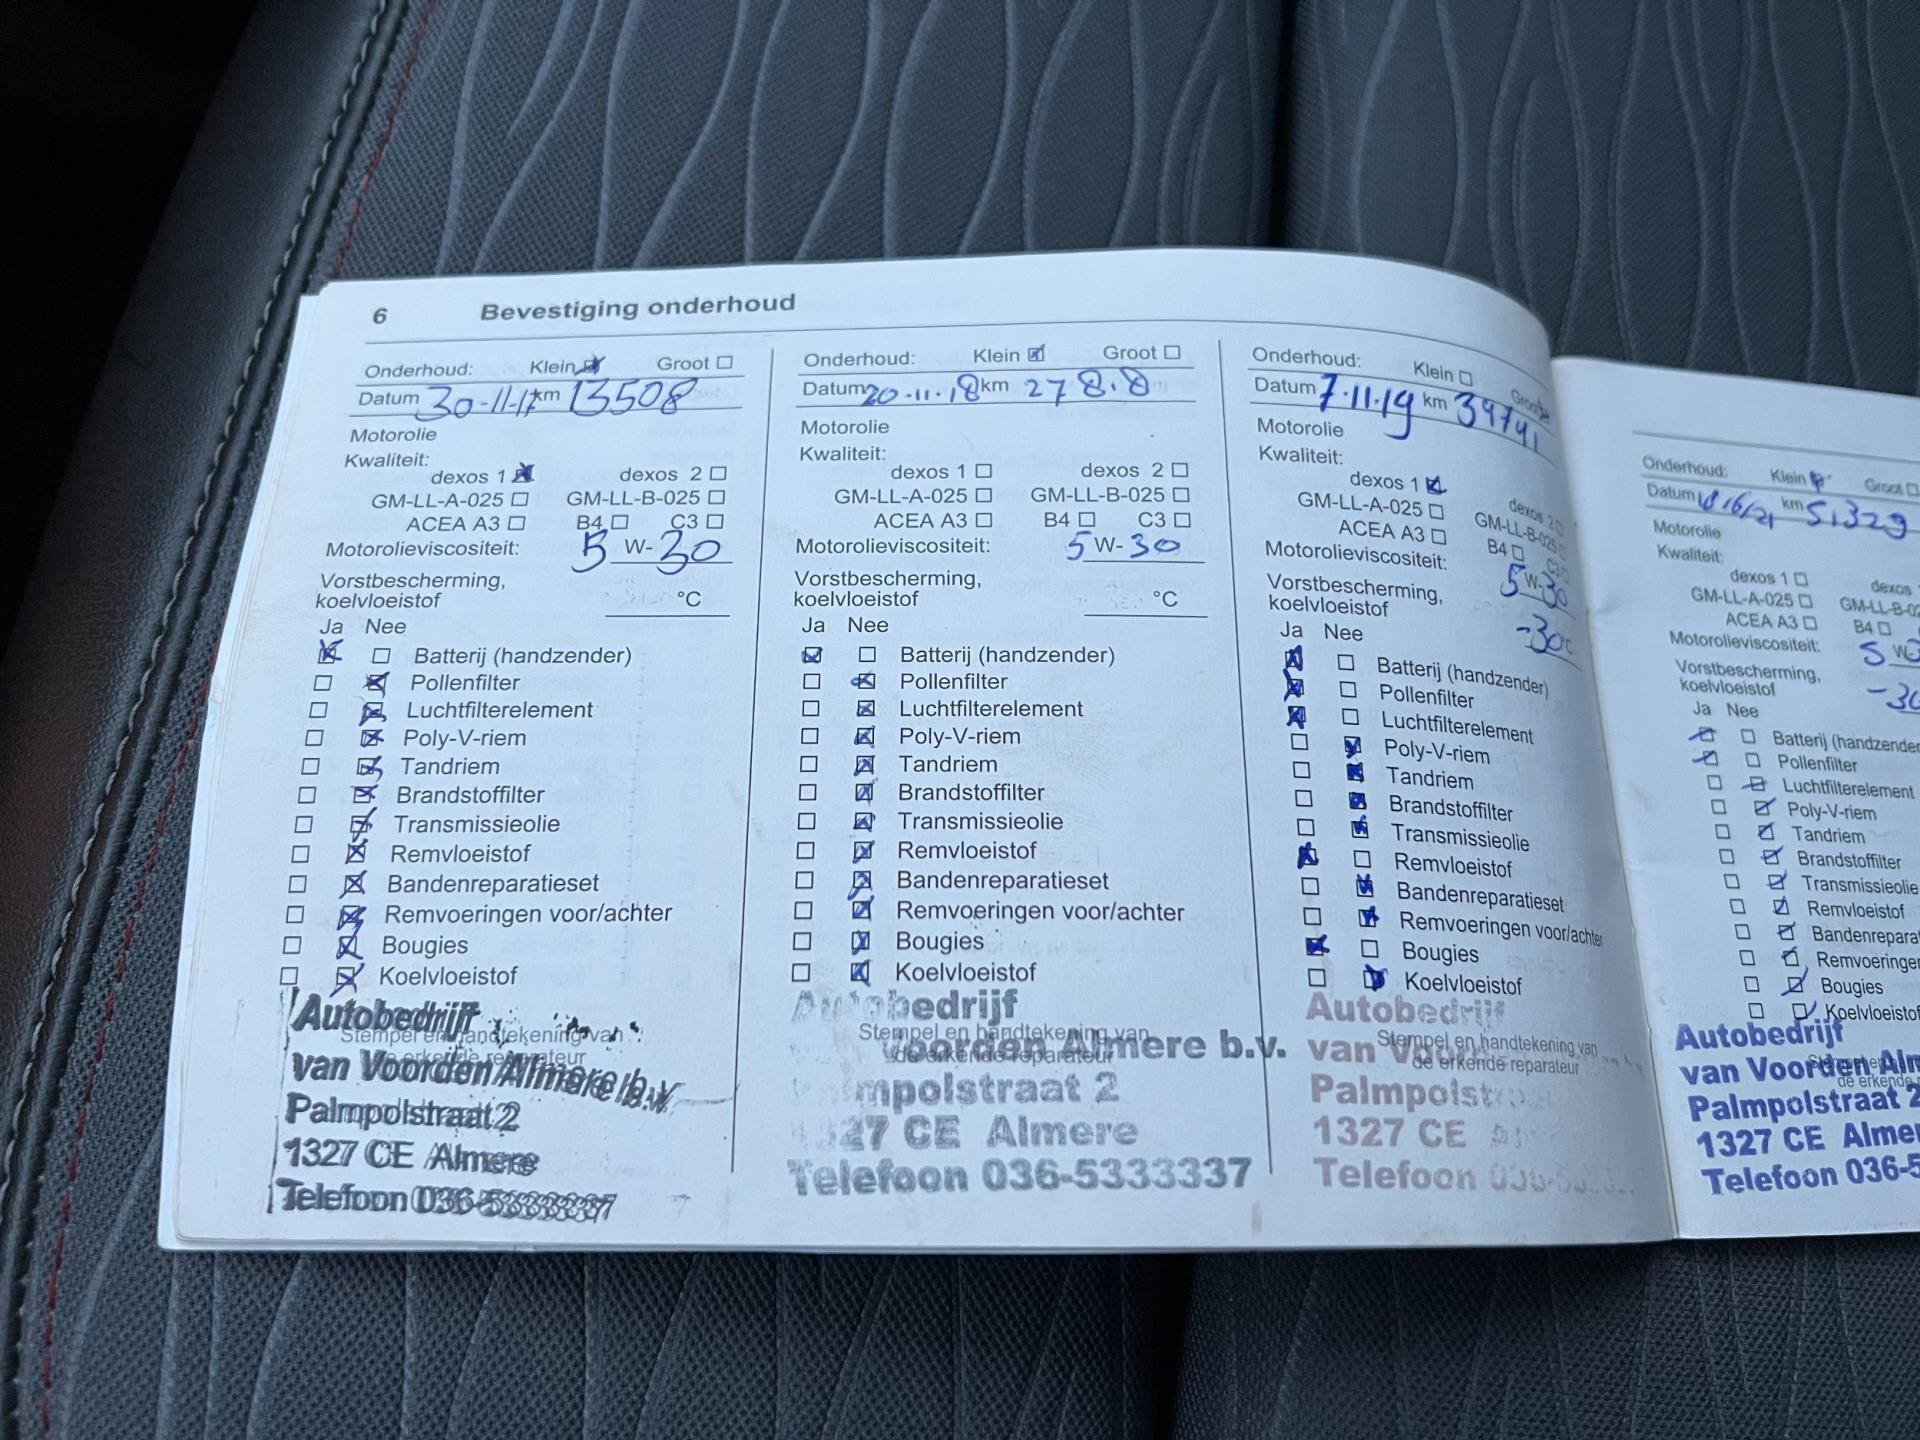 6 Bevestiging onderhoud
Onderhoud: Klein Groot
Datum 30-11-17 km 13508
Motorolie
Kwaliteit:
dexos 1 dexos 2
GM-LL-A-025 GM-LL-B-025
ACEA A3 B4 C3
Motorolieviscositeit: 5 W- 30
Vorstbescherming,
koelvloeistof °C
Ja Nee
Batterij (handzender)
Pollenfilter
Luchtfilterelement
Poly-V-riem
Tandriem
Brandstoffilter
Transmissieolie
Remvloeistof
Bandenreparatieset
Remvoeringen voor/achter
Bougies
Koelvloeistof
Stempel en handtekening van
de erkende reparateur
Autobedrijf
van Voorden Almere b.v.
Palmpolstraat 2
1327 CE Almere
Telefoon 036-5333337
Onderhoud: Klein Groot
Datum 20-11-18 km 278.8
Motorolie
Kwaliteit:
dexos 1 dexos 2
GM-LL-A-025 GM-LL-B-025
ACEA A3 B4 C3
Motorolieviscositeit: 5 W- 30
Vorstbescherming,
koelvloeistof °C
Ja Nee
Batterij (handzender)
Pollenfilter
Luchtfilterelement
Poly-V-riem
Tandriem
Brandstoffilter
Transmissieolie
Remvloeistof
Bandenreparatieset
Remvoeringen voor/achter
Bougies
Koelvloeistof
Stempel en handtekening van
de erkende reparateur
Autobedrijf
voorden Almere b.v.
mpolstraat 2
27 CE Almere
Telefoon 036-5333337
Onderhoud: Klein Groot
Datum 7.11.19 km 39741
Motorolie
Kwaliteit:
dexos 1 dexos 2
GM-LL-A-025 GM-LL-B-025
ACEA A3 B4 C3
Motorolieviscositeit: 5 W- 30
Vorstbescherming,
koelvloeistof -30 °C
Ja Nee
Batterij (handzender)
Pollenfilter
Luchtfilterelement
Poly-V-riem
Tandriem
Brandstoffilter
Transmissieolie
Remvloeistof
Bandenreparatieset
Remvoeringen voor/achter
Bougies
Koelvloeistof
Stempel en handtekening van
de erkende reparateur
Autobedrijf
van
Palmpolst
1327 CE
Telefoon
Onderhoud: Klein Groot
Datum km 51329
Motorolie
Kwaliteit:
dexos 1 dexos
GM-LL-A-025 GM-LL-B-02
ACEA A3 B4
Motorolieviscositeit: 5 W-
Vorstbescherming,
koelvloeistof -30
Ja Nee
Batterij (handzender
Pollenfilter
Luchtfilterelement
Poly-V-riem
Tandriem
Brandstoffilter
Transmissieolie
Remvloeistof
Bandenrepara
Remvoeringen
Bougies
Koelvloeistof
Autobedrijf
van Voorden Alm
Palmpolstraat 2
1327 CE Almer
Telefoon 036-5